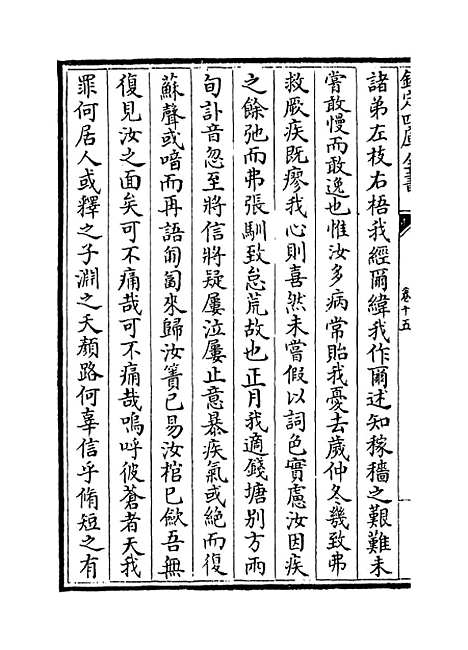 欽定四庫全書
卷十五
諸弟左枝右梧我經爾緯我作爾述知稼穡之艱難未
嘗敢慢而敢逸也惟汝多病常貽我憂去歲仲冬幾致弗
救厥疾既瘳我心則喜然未嘗假以詞色實慮汝因疾
之餘弛而弗張馴致怠荒故也正月我適錢塘别方兩
旬訃音忽至將信將疑屢泣屢止意暴疾氣或絶而復
蘇聲或喑而再語匍匐來歸汝簀已易汝棺已斂吾無
復見汝之面矣可不痛哉可不痛哉嗚呼彼蒼者天我
罪何居人或釋之子淵之夭顔路何辜信乎脩短之有